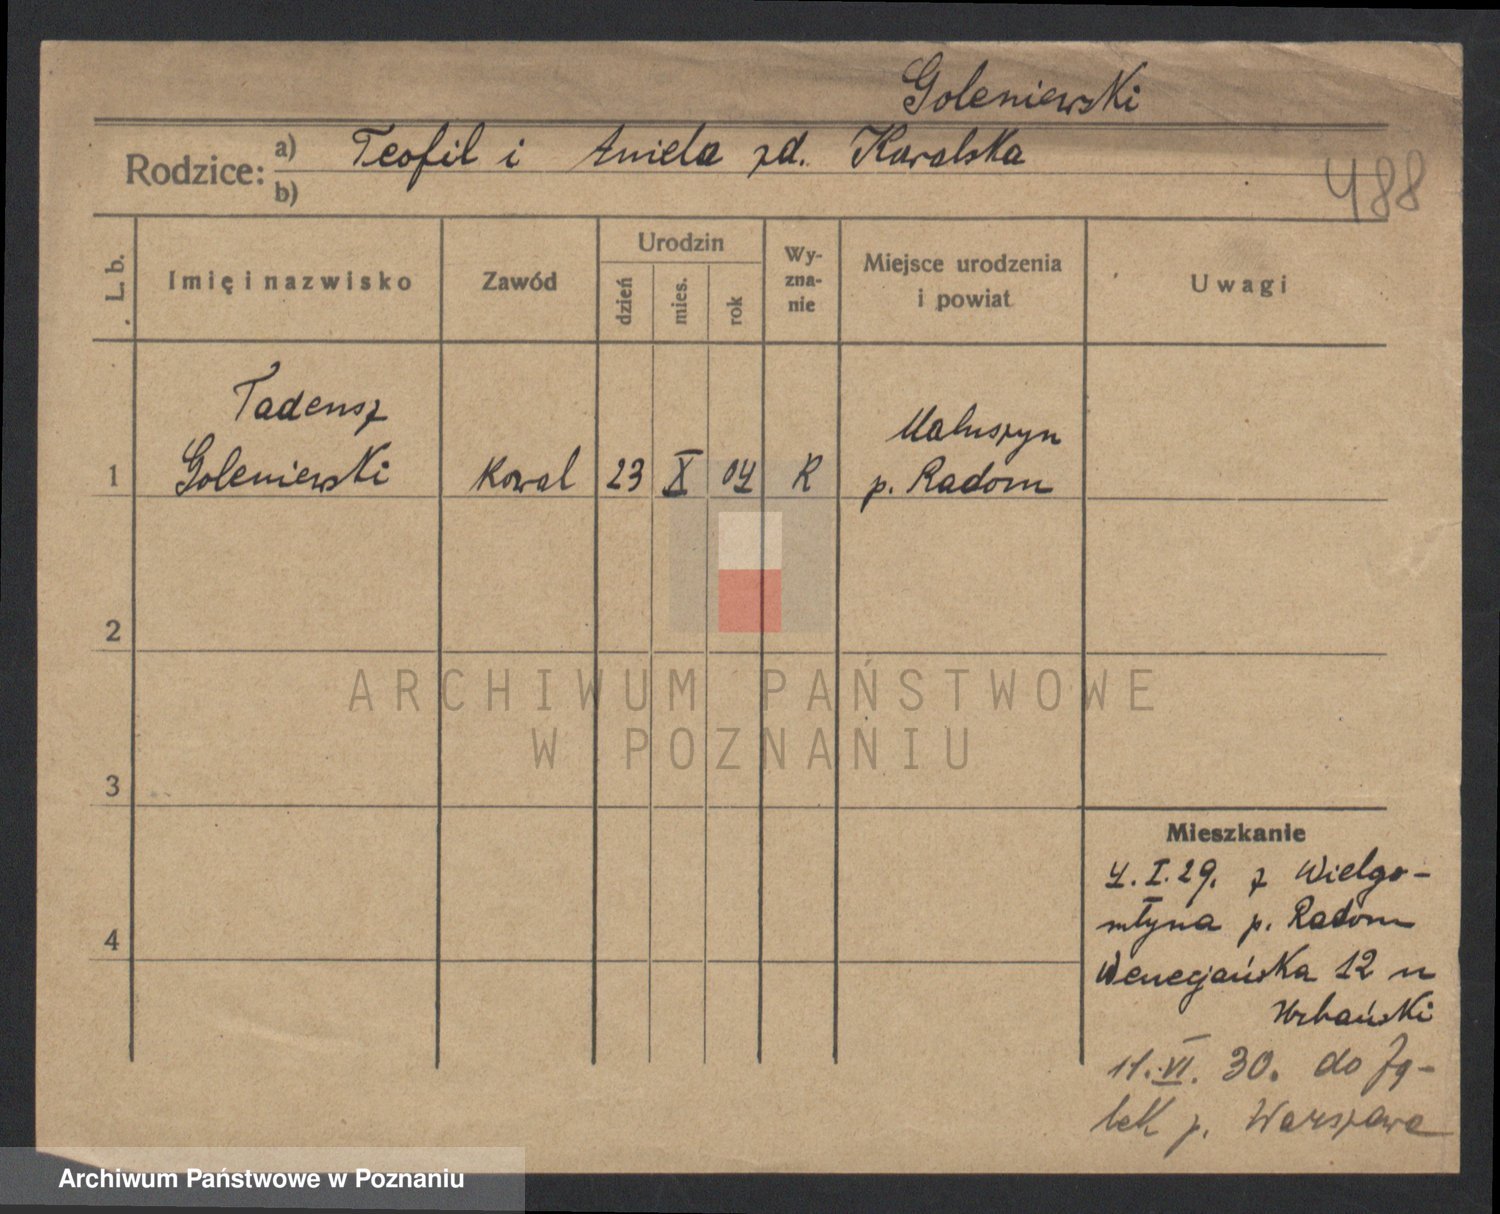 Goleniewski
Rodzice: a) Teofil i Aniela zd. Kowalska
b)
488
L. b.
Imię i nazwisko
Zawód
Urodzin
dzień
mies.
rok
Wy-
zna-
nie
Miejsce urodzenia
i powiat
Uwagi
Tadeusz
Goleniewski
1
Kowal
23
X
04
R
Maluszyn
p. Radom
2
3
4
ARCHIWUM PAŃSTWOWE
W POZNANIU
Mieszkanie
4. I. 29. z Wielgo-
młyna p. Radom
Wenecjańska 12 u
Urbański
11. VI. 30. do
p. Warszawa
Archiwum Państwowe w Poznaniu